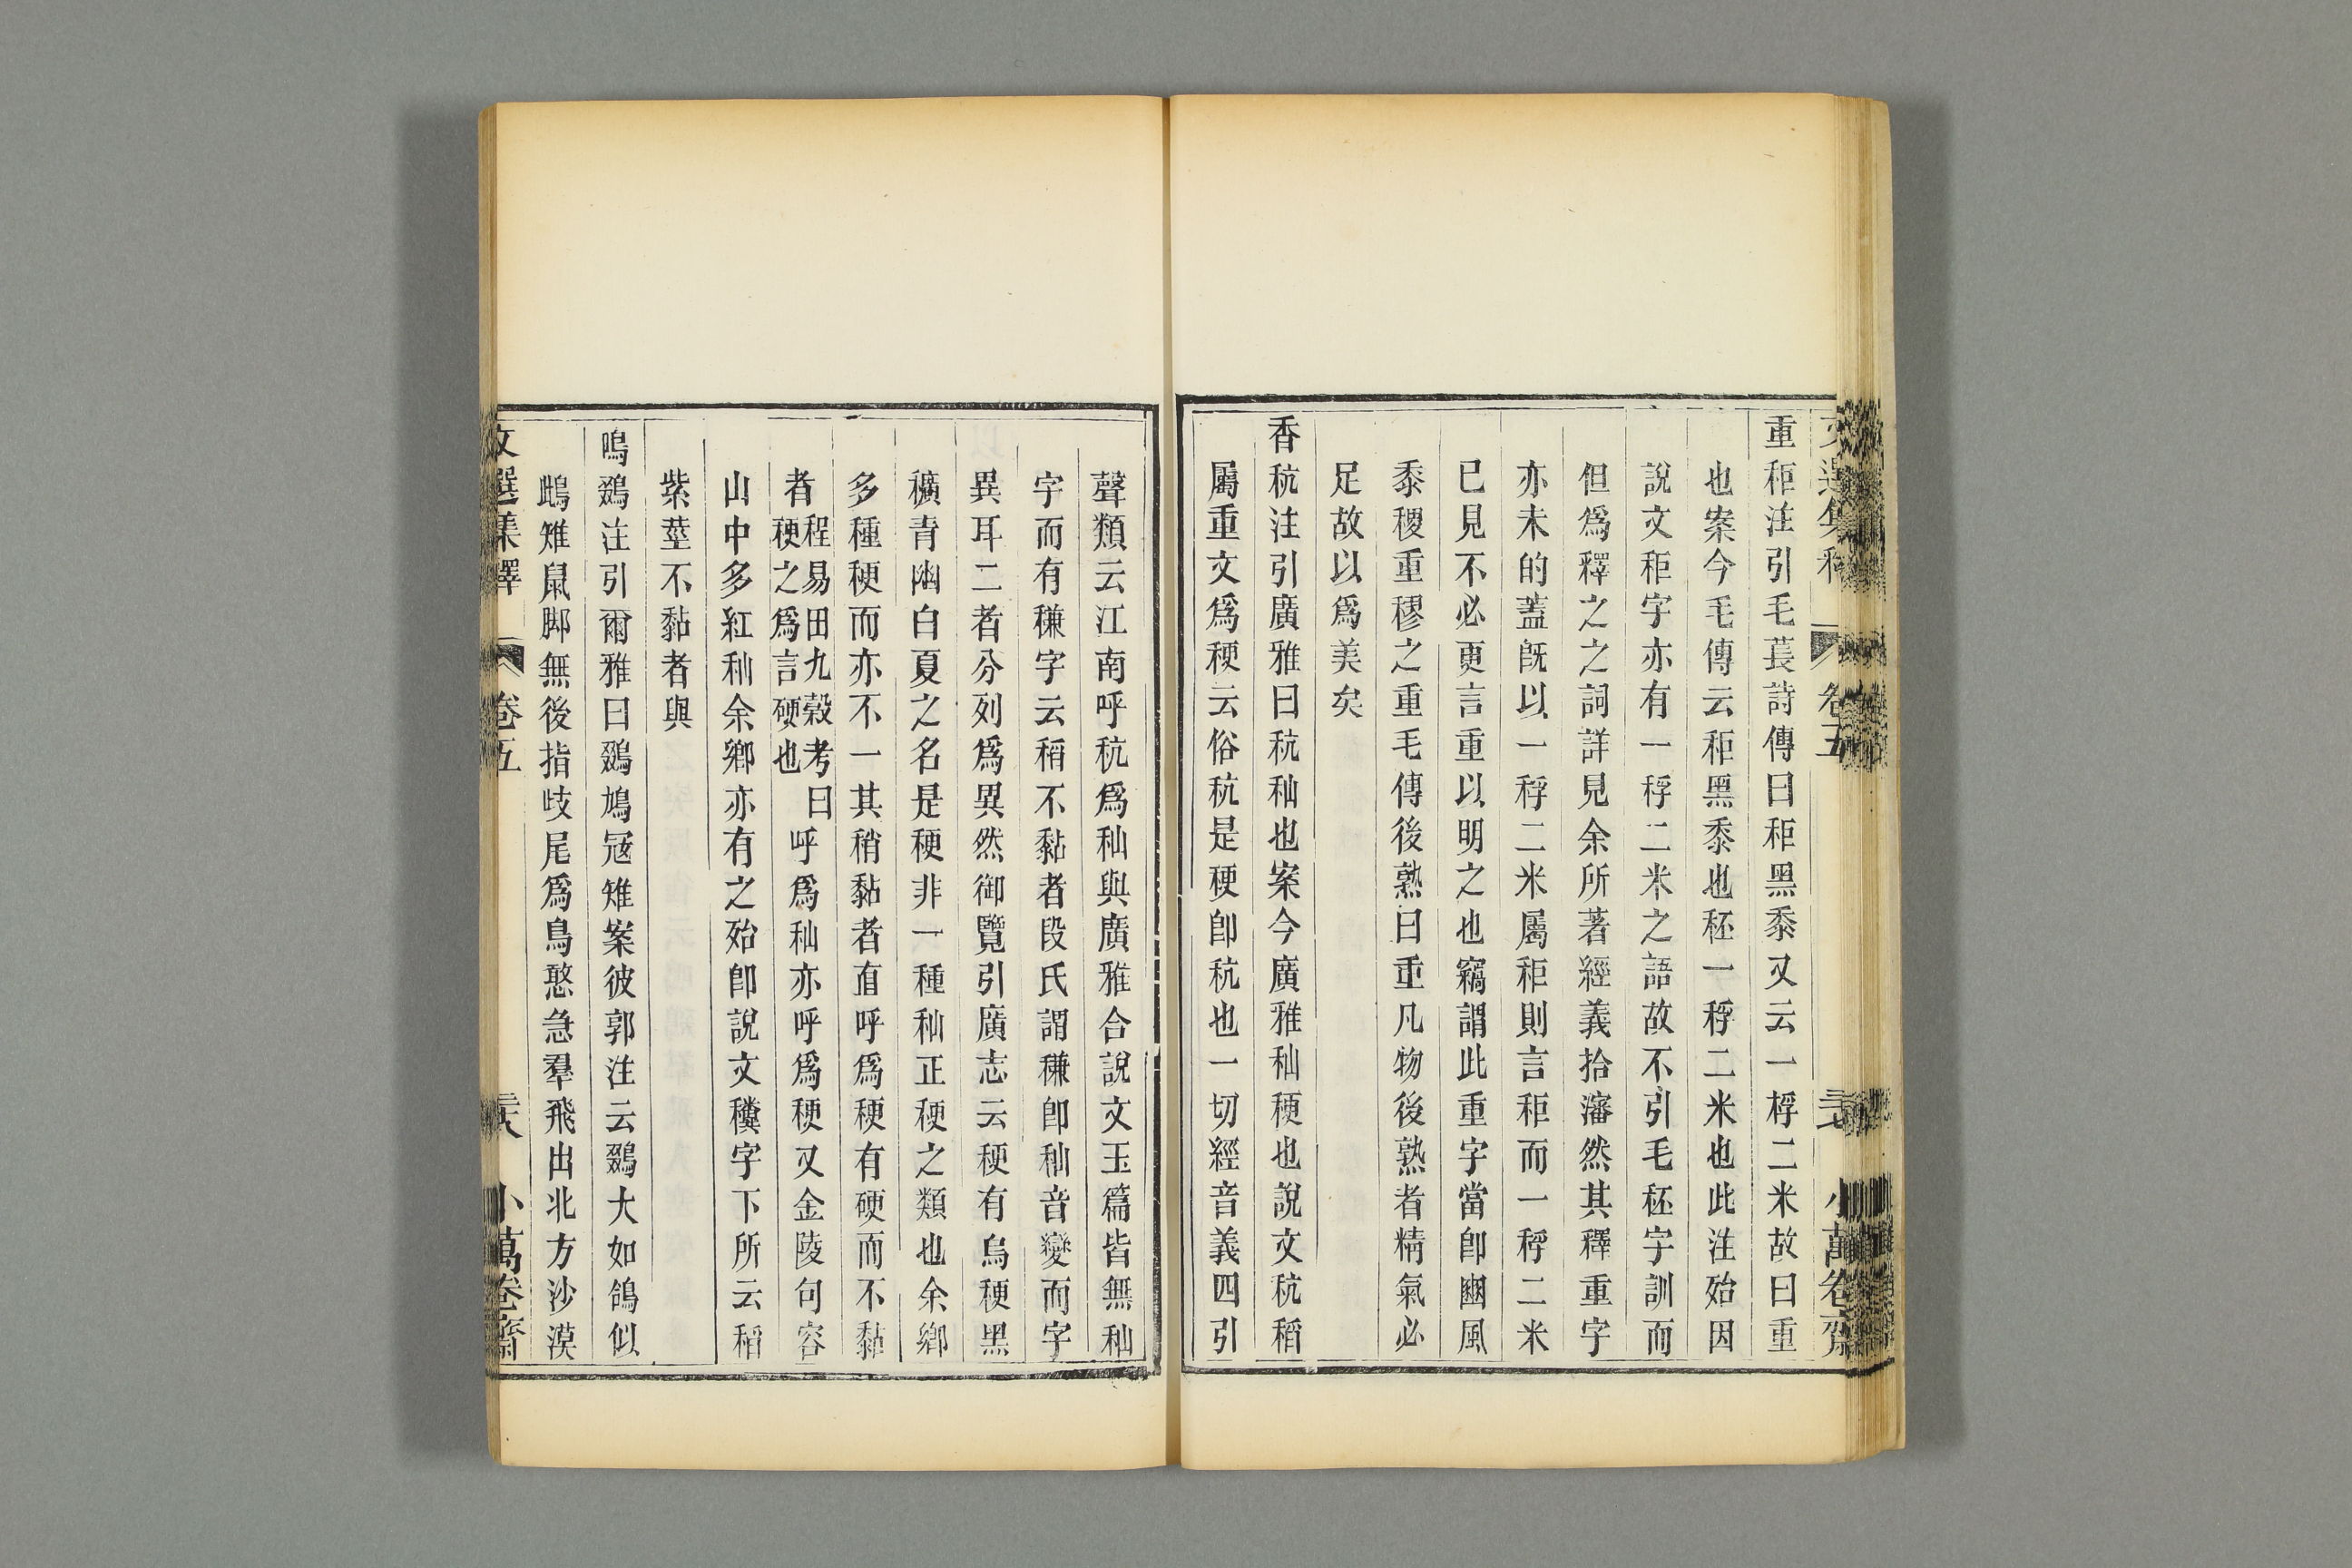 重秬注引毛萇詩傳曰秬黑黍又云一桴二米故曰重
也案今毛傳云秬黑黍也秠一稃二米也此注殆因
說文秬字亦有一稃二米之語故不引毛秠字訓而
但爲釋之之詞詳見余所著經義拾瀋然其釋重字
亦未的蓋旣以一稃二米屬秬則言秬而一稃二米
已見不必更言重以明之也竊謂此重字當卽豳風
黍稷重穋之重毛傳後熟曰重凡物後熟者精氣必
足故以爲美矣
香秔注引廣雅曰秔秈也案今廣雅秈稉也說文秔稻
屬重文爲稉云俗秔是稉卽秔也一切經音義四引
聲類云江南呼秔爲秈與廣雅合說文玉篇皆無秈
字而有䅼字云稻不黏者段氏謂䅼卽秈音變而字
異耳二者分列爲異然御覽引廣志云稉有烏稉黑
穬青幽白夏之名是稉非一種秈正稉之類也余鄉
多種稉而亦不一其稍黏者直呼爲稉有硬而不黏
者程易田九穀考曰稉之爲言硬也呼爲秈亦呼爲稉又金陵句容
山中多紅秈余鄉亦有之殆卽說文䅣字下所云稻
紫莖不黏者與
鳴鵽注引爾雅曰鵽鳩冦雉案彼郭注云鵽大如鴿似
鴟雉鼠脚無後指歧尾爲鳥憨急羣飛出北方沙漠
文選集釋 卷五 小萬卷齋